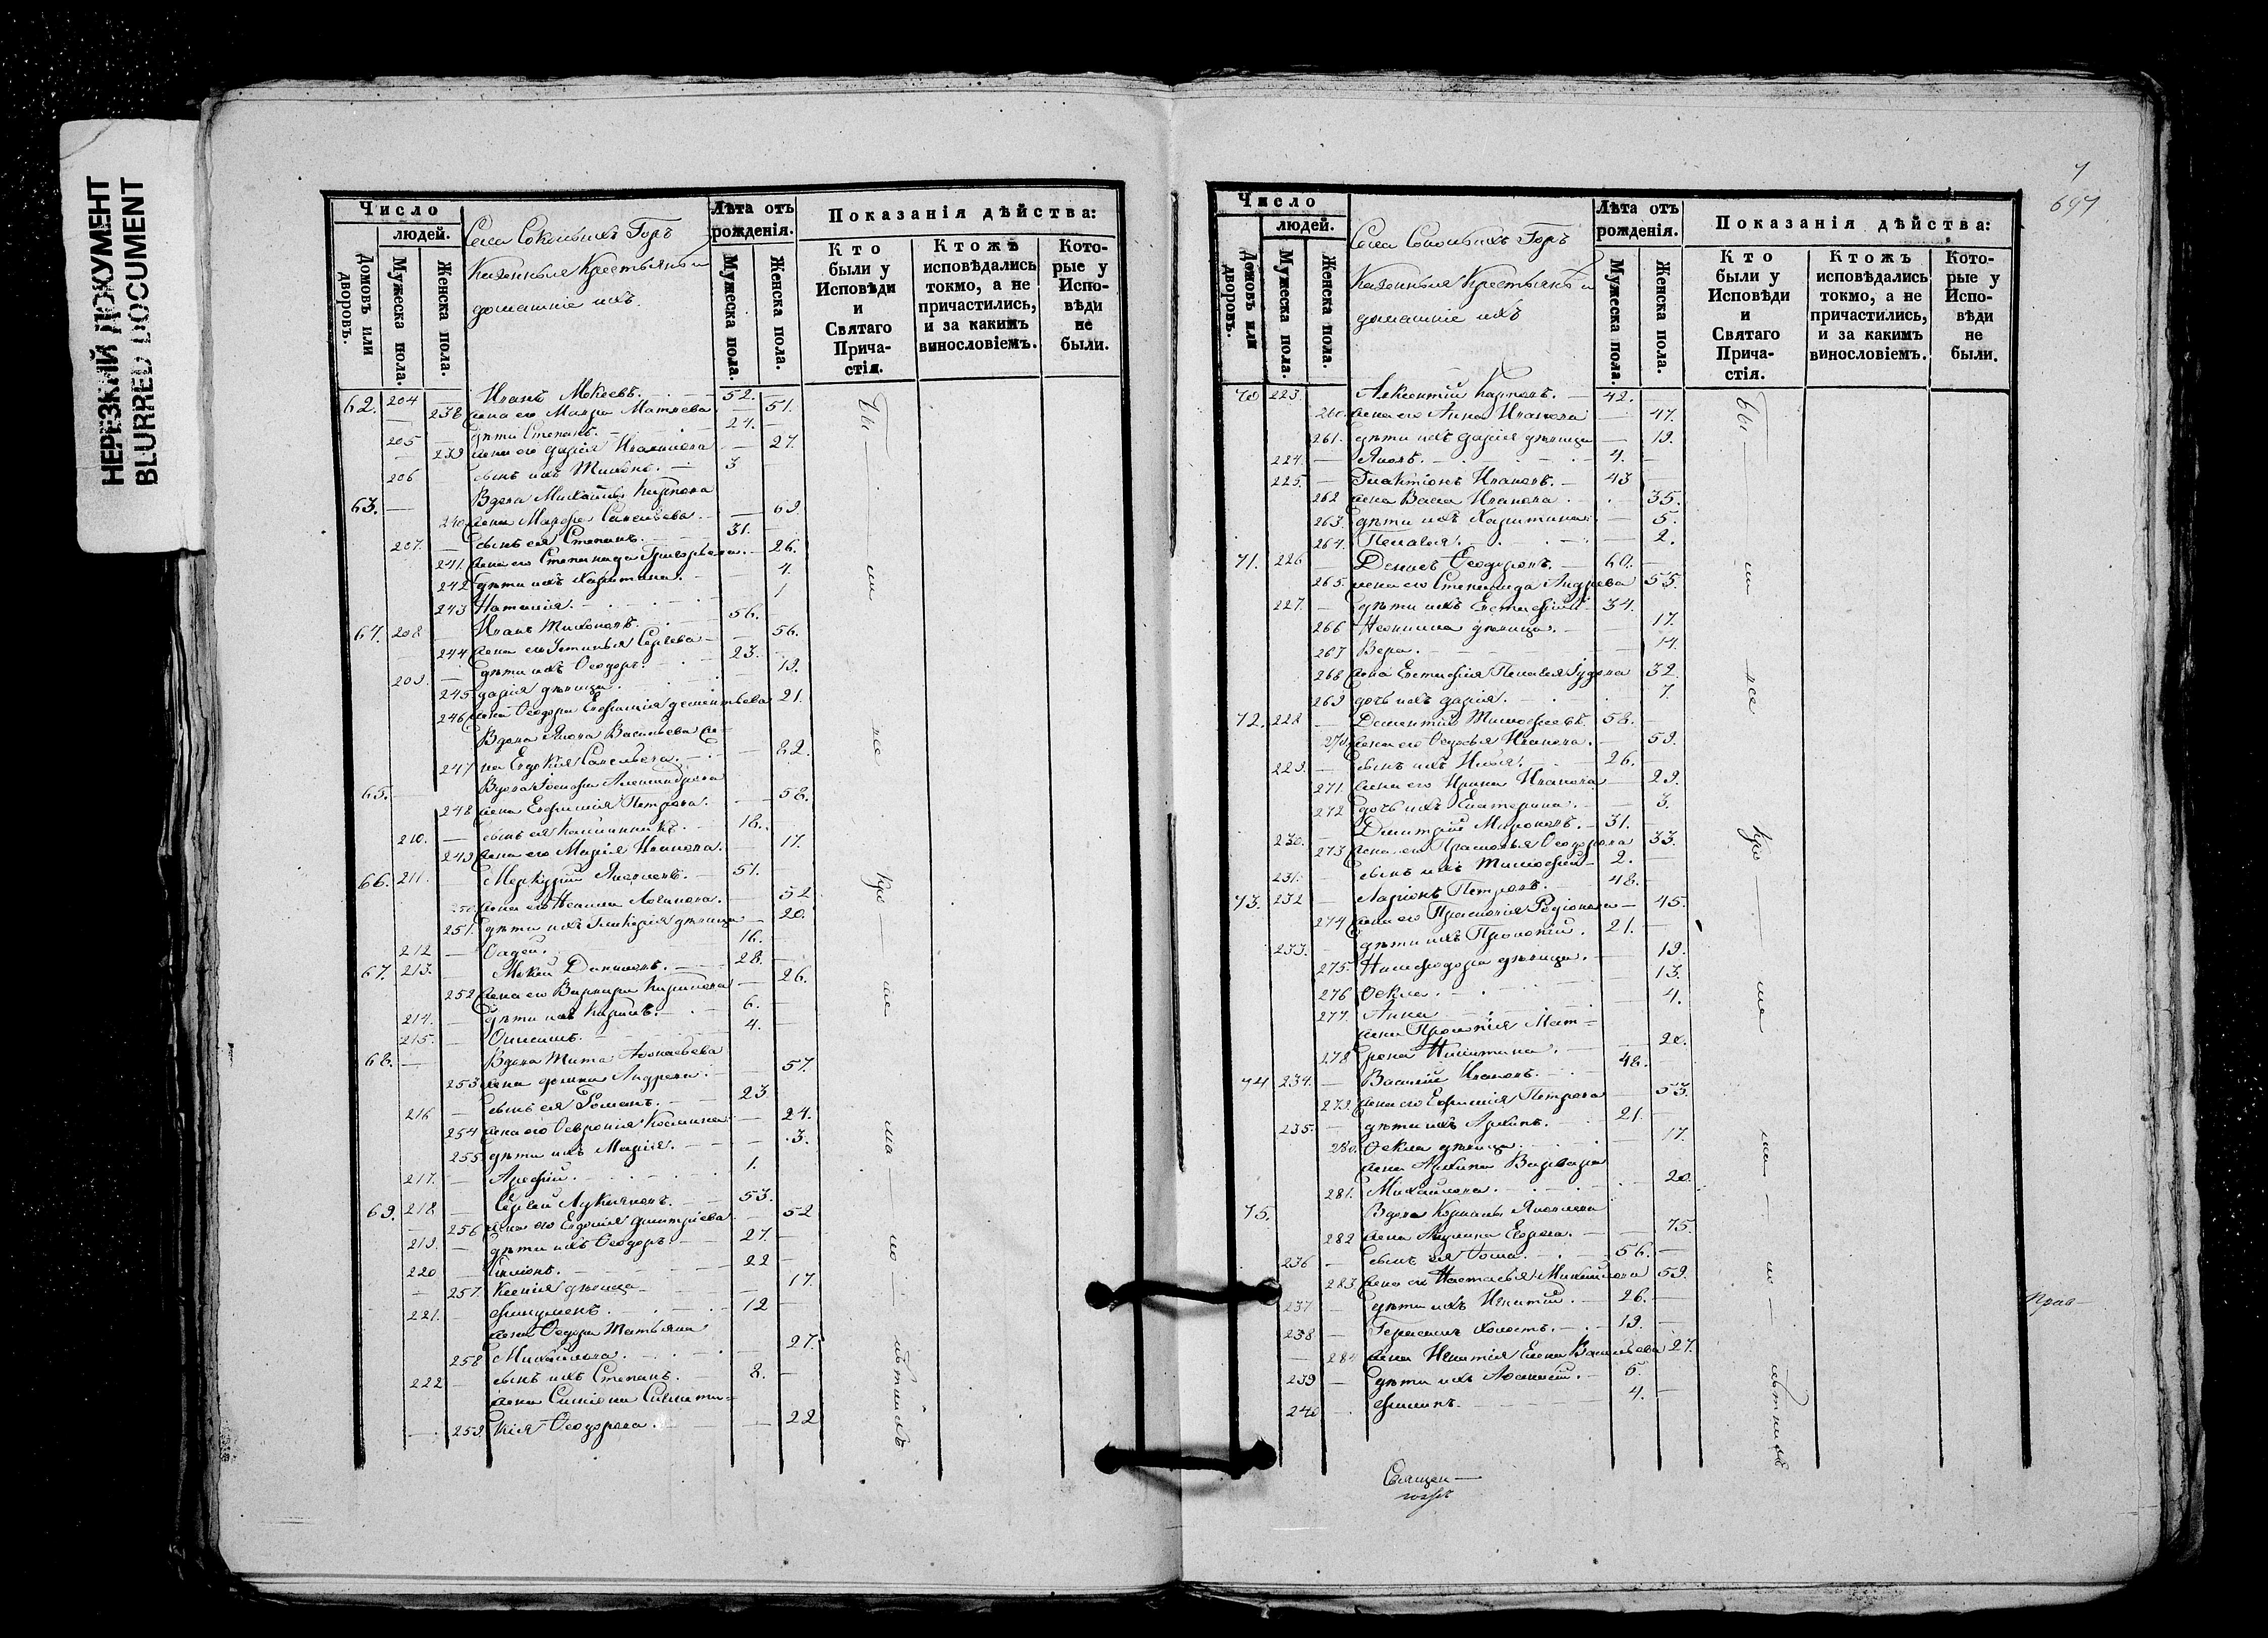 НЕРЕЗКИЙ ДОКУМЕНТ
BLURRED DOCUMENT
Число
людей.
Домовъ или дворовъ.
Мужеска пола.
Женска пола.
Села Сокольихъ Горъ
Казенныя Крестьянъ и
домашніе ихъ
Лѣта отъ рожденія.
Мужеска пола.
Женска пола.
Показанія дѣйства:
Кто были у Исповѣди и Святаго Причастія.
Ктожъ исповѣдались токмо, а не причастились, и за какимъ винословіемъ.
Которые у Исповѣди не были.
62. 204 — Иванъ Мокеевъ. — 52. —
— 238 жена его Мавра Матвеева — 51.
205 — дѣти Степанъ. — 24. —
— 239 жена его Дарія Иванова — 27.
206 — сынъ ихъ Тихонъ. — 3
63. — Вдова Михайлы Карпова
240 жена Марфа Савельева. — 69
207. — сынъ ея Степанъ. — 31. —
241. жена его Степанида Григорьева. — 26.
242 дѣти ихъ Харитина. — 4.
243 Наталия. — 1
64. 208 — Иванъ Тихоновъ. 56. —
244 жена его Устинья Сергѣева — 56.
209. — дѣти ихъ Ѳеодоръ. 23. —
245 Дарія дѣвица. 19.
246 жена Ѳеодора Евфимія Дементьева 21.
Вдова Якова Васильева же-
247 на Евдокия Савельева. — 82.
65. — Вдова Іосифа Александрова
248 жена Евфимія Петрова. — 58.
210. — сынъ ея Каллиникъ. — 18.
249 жена его Марія Иванова. — 17.
66. 211. — Меркурій Яковлевъ. — 51.
250 жена его Неонила Логинова. — 52
251. дѣти ихъ Гликерія дѣвица — 20.
212 — Ѳадей. 16. —
67. 213. — Мокей Даниловъ. — 28. —
252 жена его Варвара Кирилова — 26.
214. — дѣти ихъ Карпъ. — 6. —
215. — Онисимъ. — 4. —
68. — Вдова Тита Аѳонасьева
253 жена Домна Андреева. — 57.
216 — сынъ ея Романъ. — 23
254 жена его Февронія Косьмина — 24.
255 дѣти ихъ Марія. — 3.
217. — Арефій. 1.
69. 218. — Сергей Лукьяновъ. — 53.
256 жена его Евдокія Дмитріева — 52
219. — дѣти ихъ Ѳеодоръ. — 27. —
220 — Симіонъ. — 22
257. Ксенія дѣвица — 17.
221. — Филимонъ. — 12
жена Ѳедора Татьяна
258 Михайлова. — 27.
222 — сынъ ихъ Степанъ. — 8. —
жена Симіона Синклити-
— 259. кія Ѳеодорова. — 22
Бы — ли — все — Кро — ме — ма — ло — лѣтнихъ
7
697
Число
людей.
Домовъ или дворовъ.
Мужеска пола.
Женска пола.
Села Сокольихъ Горъ
Казенныя Крестьянъ и
домашніе ихъ
Лѣта отъ рожденія.
Мужеска пола.
Женска пола.
Показанія дѣйства:
Кто были у Исповѣди и Святаго Причастія.
Ктожъ исповѣдались токмо, а не причастились, и за какимъ винословіемъ.
Которые у Исповѣди не были.
70 223. Лаврентій Карповъ. — 42. —
260. жена его Анна Иванова — 47.
261. дѣти ихъ Дарія дѣвица — 19.
224. — Яковъ. — 4. —
225. — Галактіонъ Ивановъ. — 43
262 жена Васса Иванова. — 35.
263. дѣти ихъ Харитина. — 5.
264. Пелагея. — 2.
71. 226 — Денисъ Ѳеодоровъ. — 60. —
265. жена его Степанида Андреева 55.
227. — дѣти ихъ Евстафій — 34. —
266 Неонила дѣвица. — 17.
267 Вера. — 14.
268 жена Евстафія Пелагея Іудова 32
269 дочь ихъ Дарія. — 7.
72. 228 — Дементій Тимофеевъ. 58. —
270 жена его Ѳедосья Иванова. — 59.
229. — сынъ ихъ Илья. — 26. —
271. жена его Ирина Иванова — 29.
272 дочь ихъ Екатерина. — 3.
230. — Дмитрій Мироновъ. — 31. —
273 жена его Прасковья Ѳеодорова 33.
231. сынъ ихъ Тимофей — 2. —
73. 232 — Ларіонъ Петровъ. — 48. —
274 жена его Прасковія Родіонова — 45.
233. — дѣти ихъ Прокопій. 21. —
275. Нимфодора дѣвица. — 19.
276 Ѳекла. — 13.
277. Анна — 4.
жена Прокопія Мат-
278 рона Никитина. — 20.
74 234. — Василій Ивановъ. — 48. —
279. жена его Евфимія Петрова 53.
235. — дѣти ихъ Архипъ. — 21. —
280. Ѳекла дѣвица. — 17.
жена Архипа Варвара
281. Михайлова. — 20.
75. Вдова Корнилы Яковлева
282 жена Акулина Егорова. — 75.
236 — сынъ ея Ѳома. — 56. —
283 жена его Настасья Михайлова 59.
237 — дѣти ихъ Игнатій. — 26. —
238 — Герасимъ холостъ. — 19. —
— 284 жена Игнатія Елена Васильева 27.
239 — дѣти ихъ Аѳанасій. — 5.
240 — Филипъ. — 4. —
Бы — ли — все — Кро — ме — ма — ло — лѣтнихъ
Священ—